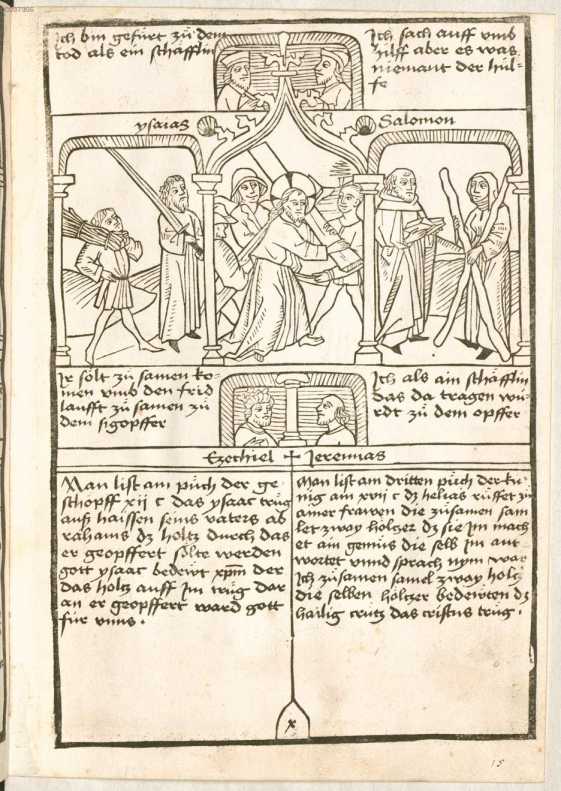 ich bin gefürt zů dem
tod als ein schäfflin
Ich sach auff vmb
hilff aber es was
niemant der hül=
fe
ysaias
Salomon
Ir sölt zů samen ko=
men vmb den frid
laufft zů samen zů
dem sigopffer
Ich als ain schäfflin
das da tragen wu
rdt zů dem opffer
Ezechiel + Jeremias
Man list am půch der ge
schöpff xij c das ysaac trůg
auß haissen seins vaters ab
rahams dz holtz durch das
er geopffert sölte werden
gott ysaac bedeüt xpm der
das holtz auff im trůg dar
an er geopffert ward gott
für vnns .
Man list am dritten půch der kü
nig am xvij c dz helias růffet zů
ainer frawen die zůsamen sam
let zway höltzer dz sie im mach
et ain gemüs die selb im ant
wortet vnnd sprach nym war
Ich zůsamen samel zway höltz
die selben höltzer bedeüten dz
hailig crütz das cristus trůg .
x
15